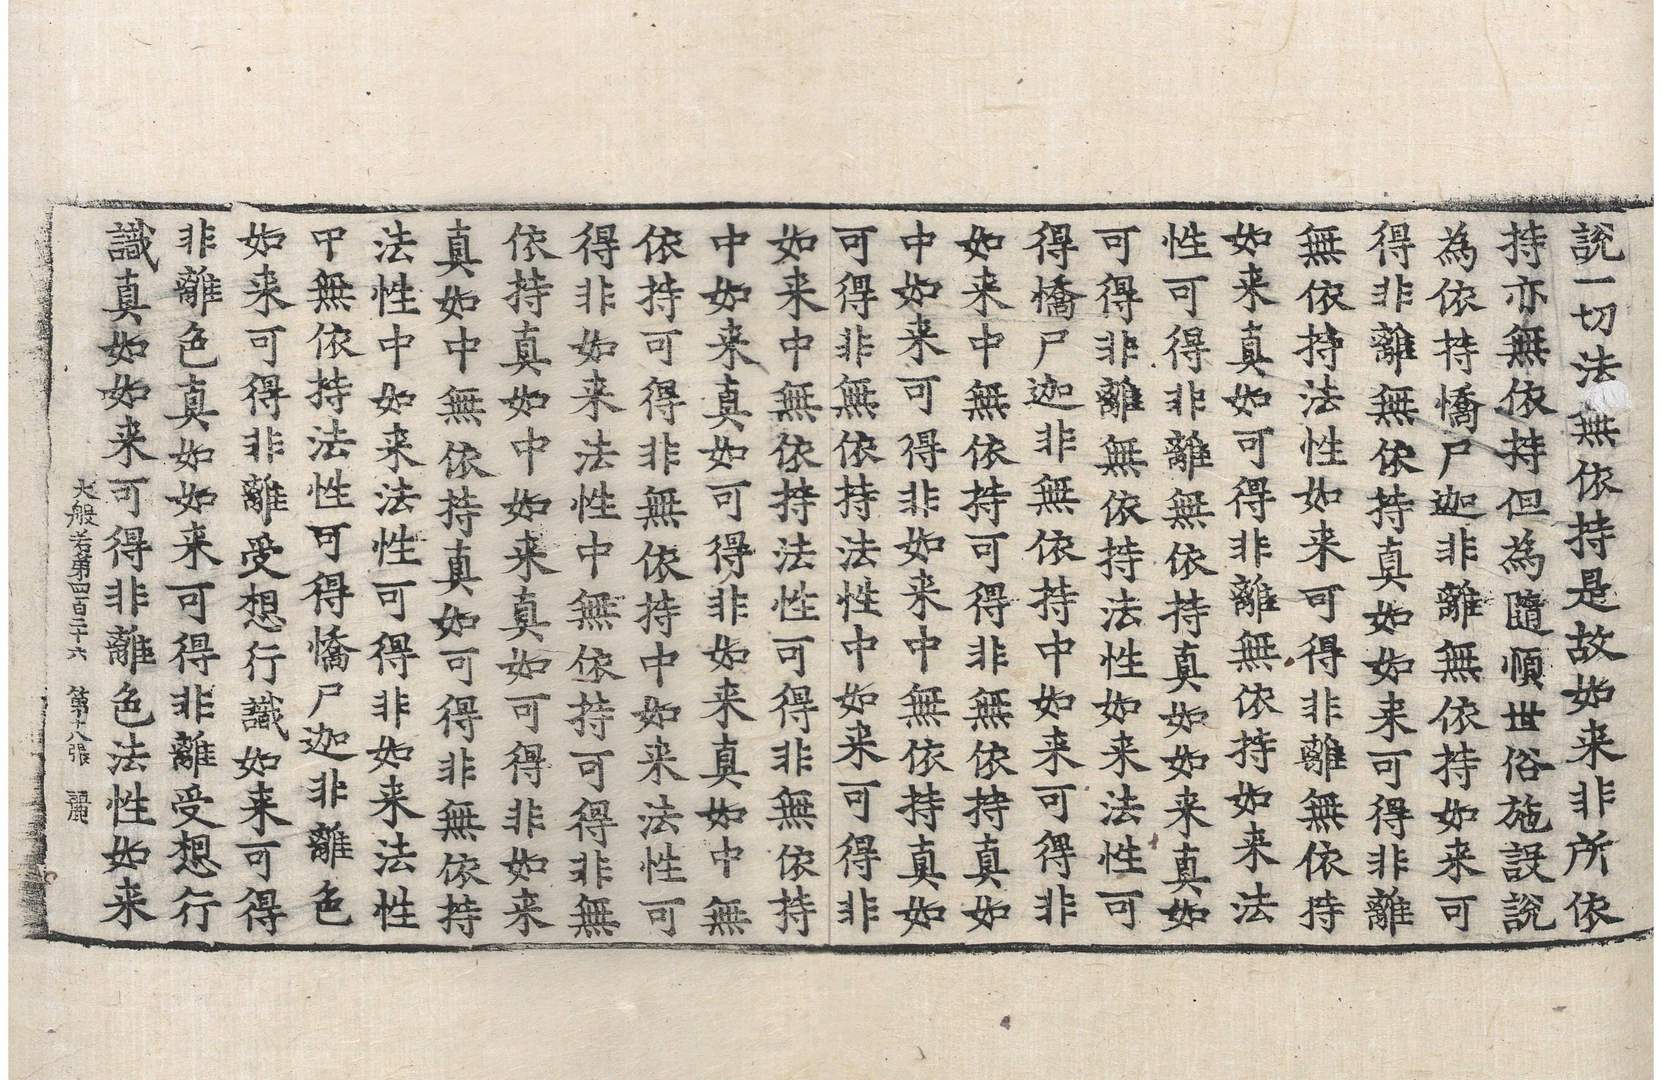 說一切法無依持是故如来非所依
持亦無依持但為隨順世俗施設說
為依持憍尸迦非離無依持如来可
得非離無依持真如如来可得非離
無依持法性如来可得非離無依持
如来真如可得非離無依持如来法
性可得非離無依持真如如来真如
可得非離無依持法性如来法性可
得憍尸迦非無依持中如来可得非
如来中無依持可得非無依持真如
中如来可得非如来中無依持真如
可得非無依持法性中如来可得非
如来中無依持法性可得非無依持
中如来真如可得非如来真如中無
依持可得非無依持中如来法性可
得非如来法性中無依持可得非無
依持真如中如来真如可得非如来
真如中無依持真如可得非無依持
法性中如来法性可得非如来法性
中無依持法性可得憍尸迦非離色
如来可得非離受想行識如来可得
非離色真如如来可得非離受想行
識真如如来可得非離色法性如来
大般若第四百二十六 第十八張 麗